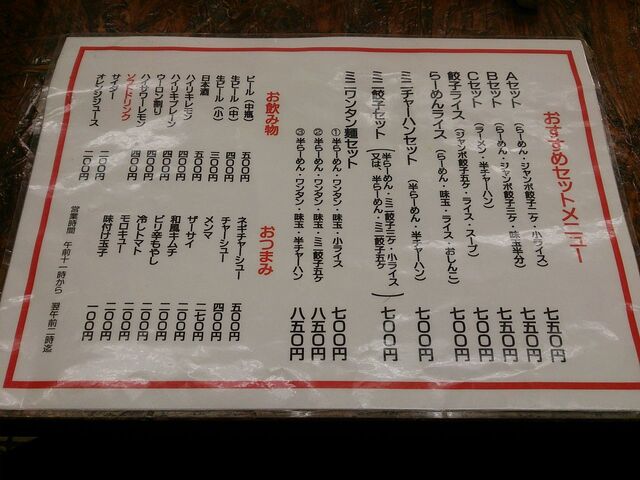 おすすめセットメニュー
Aセット （らーめん・ジャンボ餃子二ヶ・小ライス） 七五〇円
Bセット （らーめん・ジャンボ餃子三ヶ・味玉半分） 七五〇円
Cセット （ラーメン・半チャーハン） 七五〇円
餃子ライス （ジャンボ餃子五ヶ・ライス・スープ） 七〇〇円
らーめんライス （らーめん・味玉・ライス・おしんこ） 七〇〇円
ミニチャーハンセット （半らーめん・半チャーハン） 七〇〇円
ミニ餃子セット （半らーめん・ミニ餃子三ヶ・小ライス 又は、半らーめん・ミニ餃子五ヶ） 七〇〇円
ミニワンタン麺セット
①半らーめん・ワンタン・味玉・小ライス 七〇〇円
②半らーめん・ワンタン・味玉・ミニ餃子五ヶ 八五〇円
③半らーめん・ワンタン・味玉・半チャーハン 八五〇円
お飲み物
ビール（中瓶） 五〇〇円
生ビール（中） 四〇〇円
生ビール（小） 三〇〇円
日本酒 五〇〇円
ハイリキレモン 四〇〇円
ハイリキプレーン 四〇〇円
ウーロン割り 四〇〇円
ハイサワーレモン 四〇〇円
ソフトドリンク
サイダー 二〇〇円
オレンジジュース 二〇〇円
おつまみ
ネギチャーシュー 五〇〇円
チャーシュー 四〇〇円
メンマ 二七〇円
ザーサイ 二〇〇円
和風キムチ 二〇〇円
ピリ辛もやし 二〇〇円
冷しトマト 二〇〇円
モロキュー 二〇〇円
味付け玉子 一〇〇円
営業時間 午前十一時から 翌午前二時迄